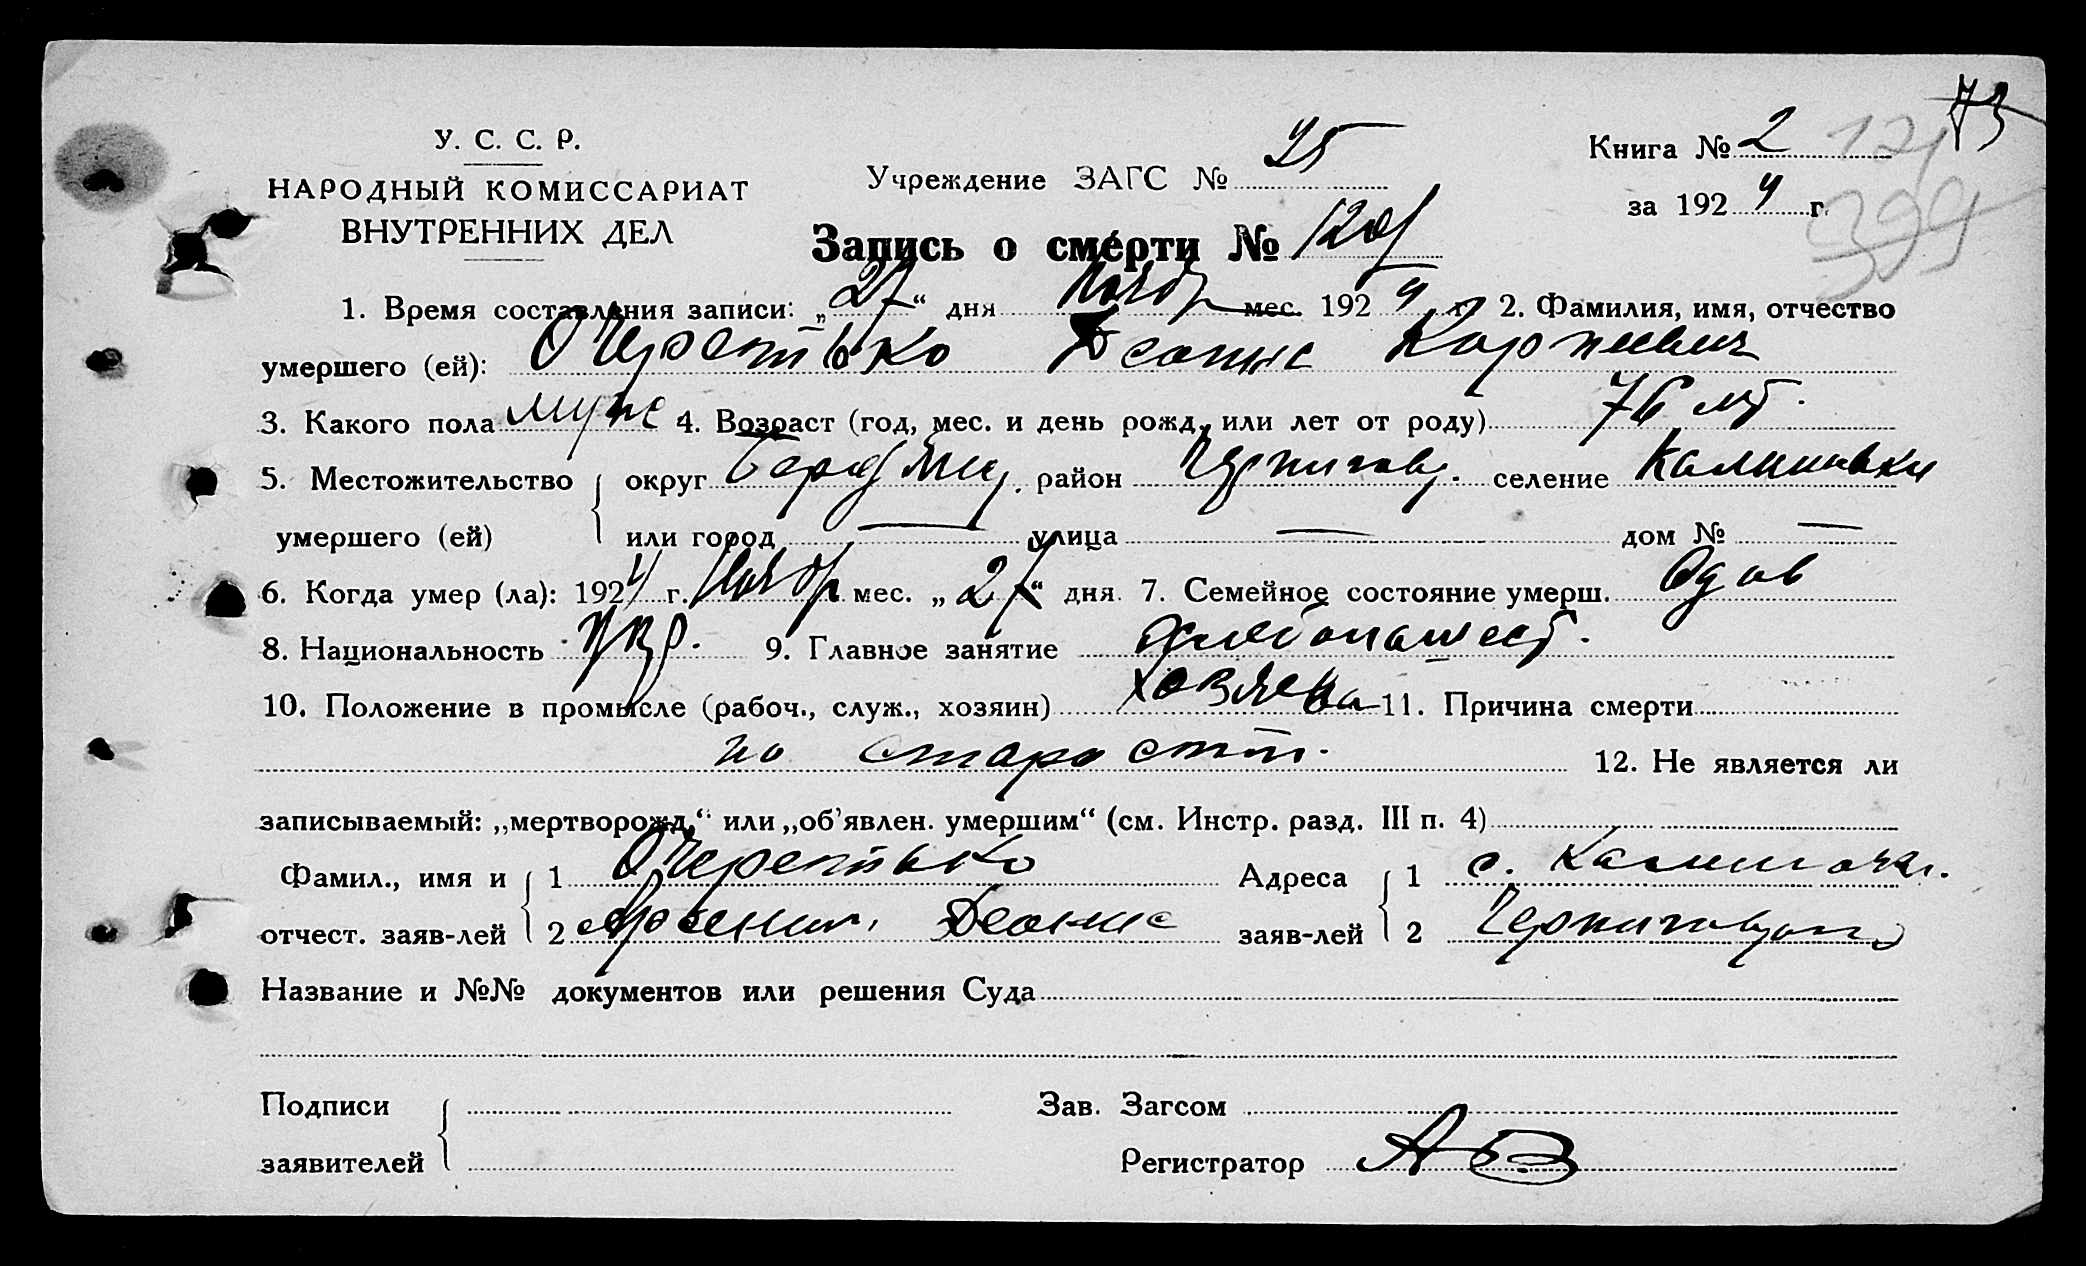 73
У. С. С. Р.
НАРОДНЫЙ КОМИССАРИАТ
ВНУТРЕННИХ ДЕЛ
Учреждение ЗАГС №
Книга № 2
за 1924 г.
399
Запись о смерти №
1. Время составления записи: „27“ дня Ноябр мес. 1924 г. 2. Фамилия, имя, отчество
умершего (ей): Очеретько Деонис Карпович
3. Какого пола муж 4. Возраст (год, мес. и день рожд. или лет от роду) 76 лѣт.
5. Местожительство округ район Чернигов. селение Калиновки
умершего (ей) или город — улица — дом № —
6. Когда умер (ла): 1924 г. Ноябр мес. „27“ дня 7. Семейное состояние умерш. Вдов
8. Национальность Укр. 9. Главное занятие хлебопашест.
10. Положение в промысле (рабоч., служ., хозяин) 11. Причина смерти
по старости.
12. Не является ли
записываемый: „мертворожд.“ или „об’явлен. умершим“ (см. Инстр. разд. III п. 4)
Фамил., имя и 1 Очеретько Адреса 1 с. Калиновки.
отчест. заяв-лей 2 Арсений Деонис заяв-лей 2
Название и №№ документов или решения Суда
Подписи
заявителей
Зав. Загсом
Регистратор